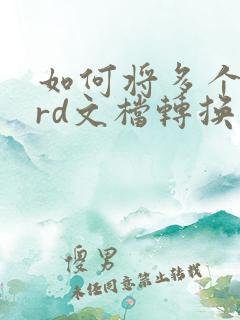 如何将多个
rd文檔轉換
傻男
未经同意禁止转载